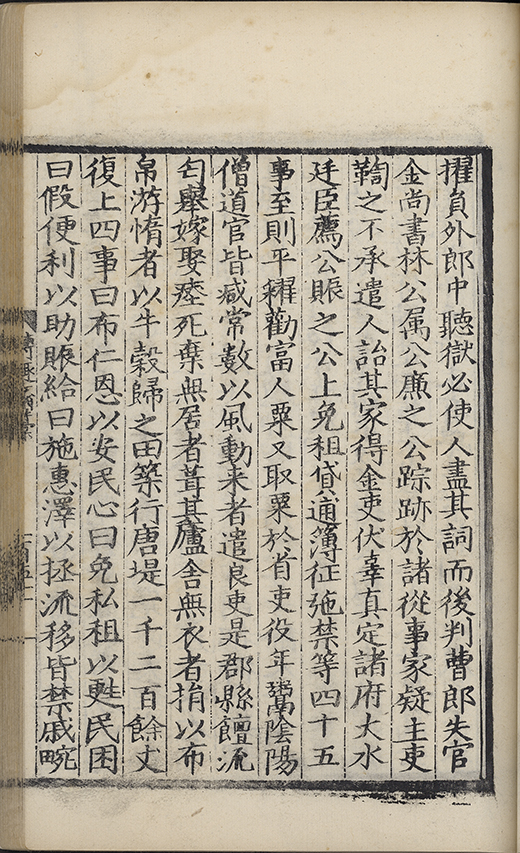 擢員外郎中聽獄必使人盡其詞而後判曹郎失官
金尚書林公属公廉之公踪跡於諸從事家疑主吏
鞫之不承遣人詒其家得金吏伏辜真定諸府大水
廷臣薦公賑之公上免租貸逋薄征弛禁等四十五
事至則平糴勸富人粟又取粟於省吏役年鬻陰陽
僧道官皆咸常數以風動来者遣良吏是郡縣饘流
匄舉嫁娶瘞死棄無居者葺其廬舍無衣者捐以布
帛游惰者以牛榖歸之田築行唐堤一千二百餘丈
復上四事曰布仁恩以安民心曰免私租以甦民困
曰假便利以助賑給曰施惠澤以拯流移皆禁戚畹